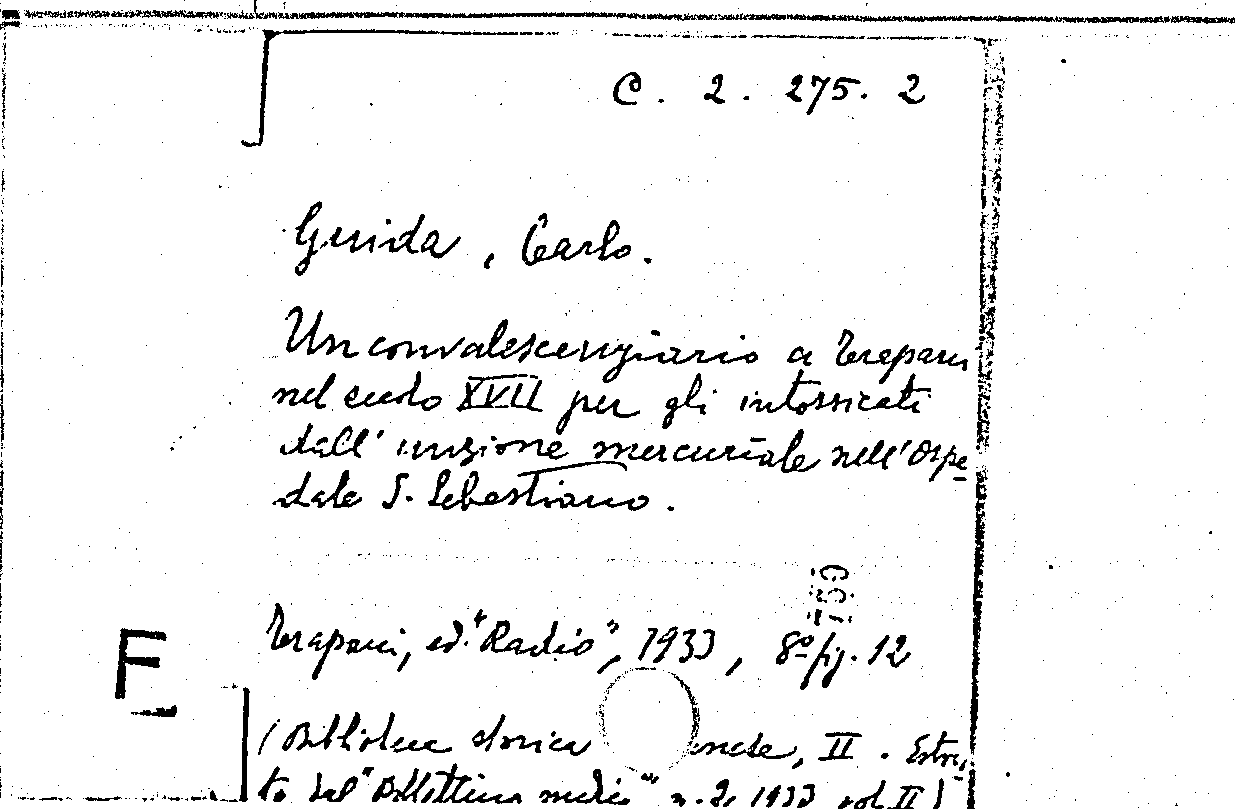 C. 2. 275. 2
Guida, Carlo.
Un convalescenziario a Trapani
nel secolo XVII per gli intossicati
dall'unzione mercuriale nell'Ospe
dale S. Sebastiano.
Trapani, ed. "Radio", 1933, 8º fig. 12
F
(Biblioteca storica II. Estrat
to dal "Bollettino medico" n. 2, 1933 vol. II)